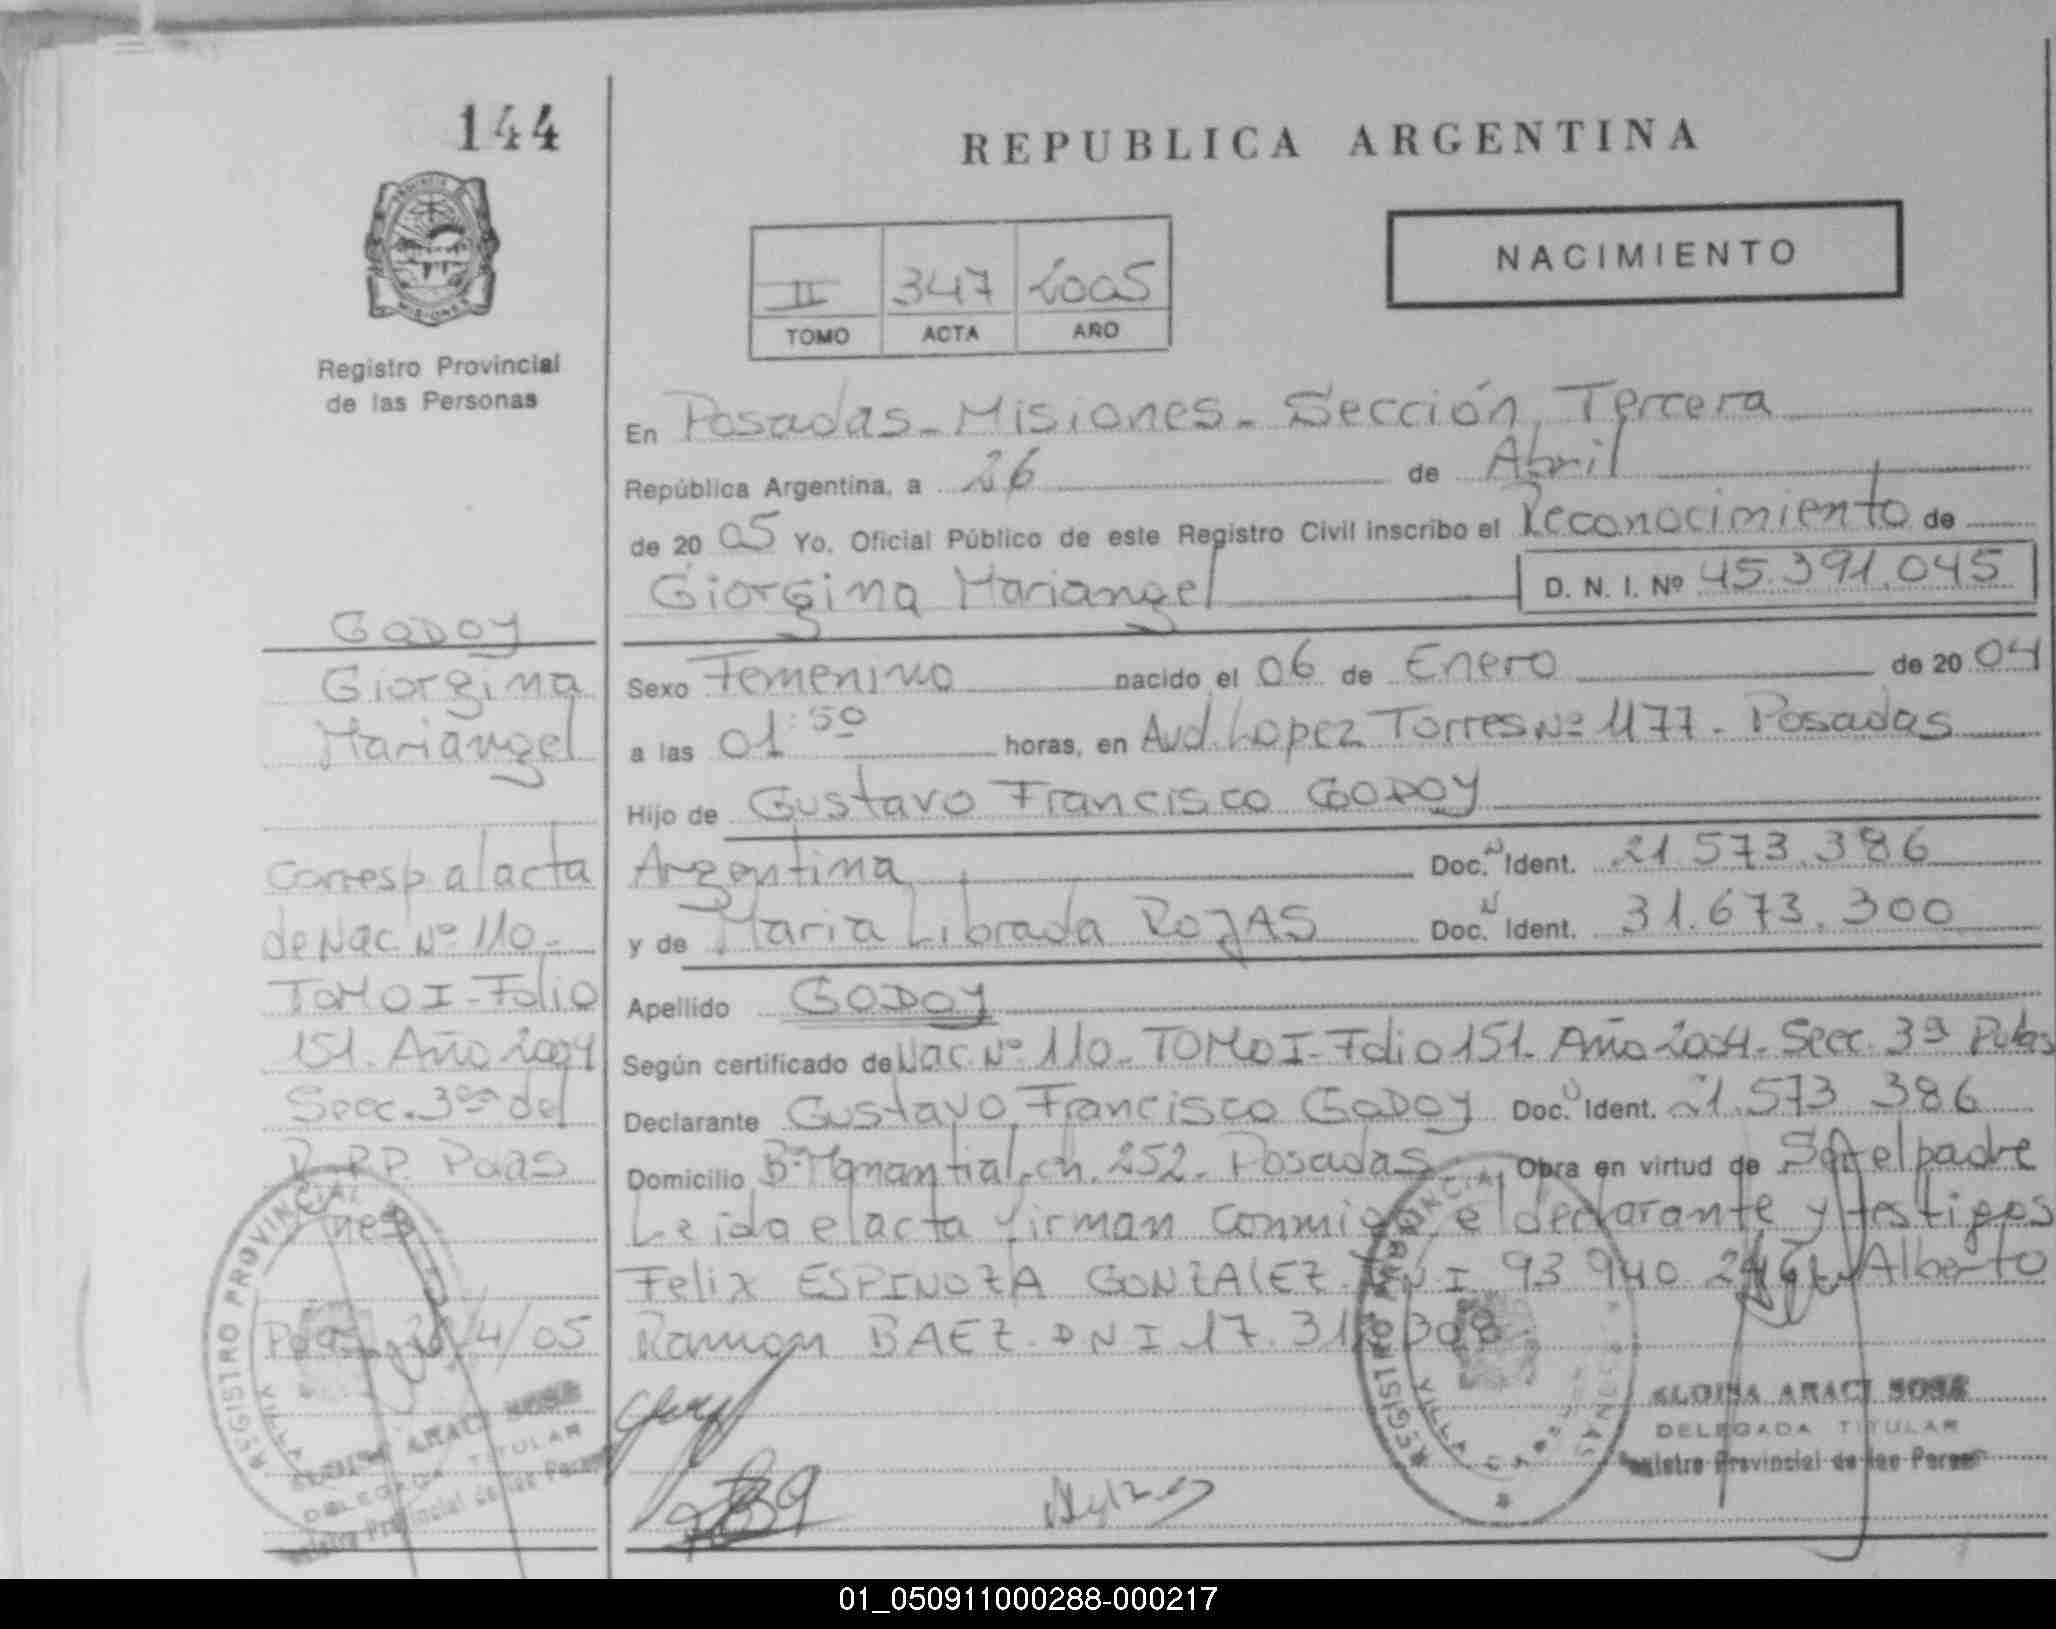 144
REPUBLICA ARGENTINA
NACIMIENTO
II 347 2005
TOMO ACTA AÑO
MISIONES
Registro Provincial
de las Personas
En Posadas - Misiones - Sección Tercera
República Argentina, a 26 de Abril
de 2005 Yo, Oficial Público de este Registro Civil inscribo el Reconocimiento de
Giorgina Mariangel D. N. I. Nº 45.391.045
Sexo Femenino nacido el 06 de Enero de 2004
a las 01:50 horas, en Avd. Lopez Torres Nº 1177 - Posadas
Hijo de Gustavo Francisco GODOY
Argentina Doc. N Ident. 21.573.386
y de Maria Librada ROJAS Doc. N Ident. 31.673.300
Apellido GODOY
Según certificado de Nac. Nº 110 - TOMO I - Folio 151 - Año 2004 - Secc. 3ª
Declarante Gustavo Francisco GODOY Doc. Ident. 21.573.386
Domicilio Bº Manantial - ch. 252 - Posadas Obra en virtud de el padre
Leida el acta firman conmigo el declarante y testigos
Felix ESPINOZA GONZALEZ DNI 93 940 Alberto
Ramon BAEZ - DNI 17.
GODOY
Giorgina
Mariangel
Corresp al acta
de Nac Nº 110 -
TOMO I - Folio
151. Año 2004
Secc. 3ª del
R. P. P. Pdas
nes
/4/05
REGISTRO PROVINCIAL
VILLA
ELOISA ARACI SOSA
DELEGADA TITULAR
Registro Provincial de las Personas
REGISTRO PROVINCIAL
VILLA
ELOISA ARACI SOSA
DELEGADA TITULAR
Registro Provincial de las Personas
01_050911000288-000217